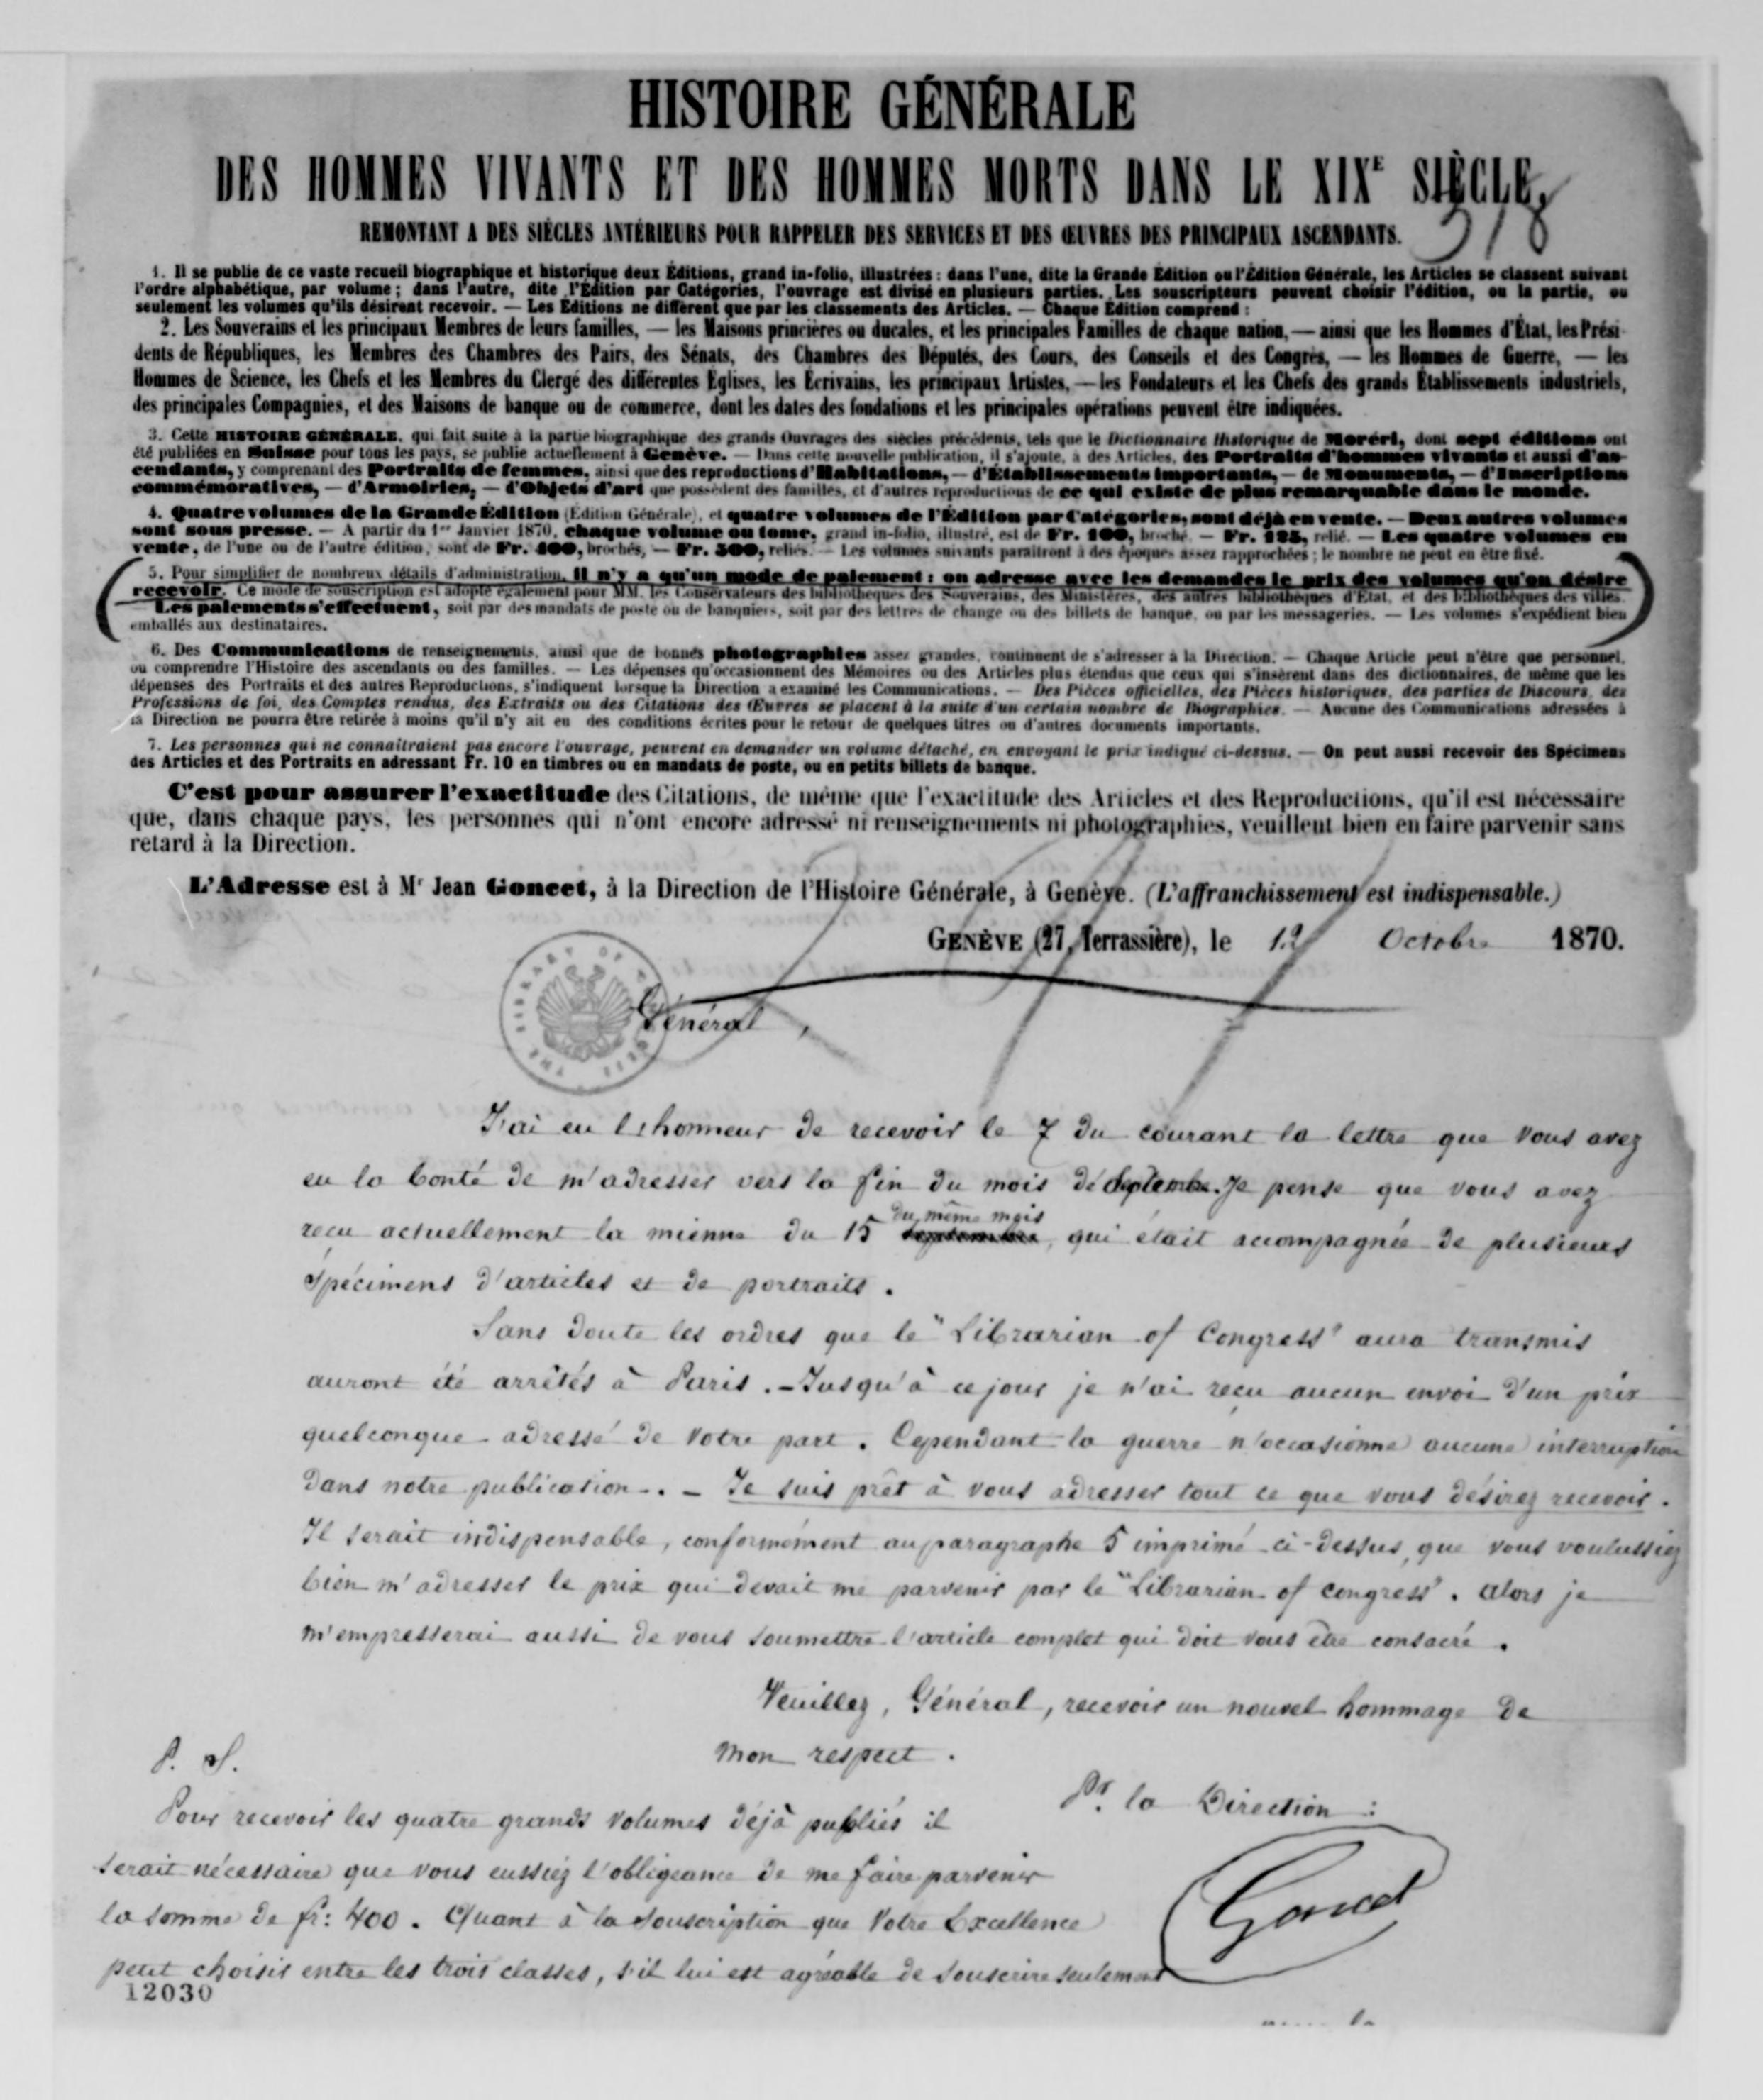 HISTOIRE GÉNÉRALE
DES HOMMES VIVANTS ET DES HOMMES MORTS DANS LE XIXE SIÈCLE,
318
REMONTANT A DES SIÈCLES ANTÉRIEURS POUR RAPPELER DES SERVICES ET DES ŒUVRES DES PRINCIPAUX ASCENDANTS.
1. Il se publie de ce vaste recueil biographique et historique deux Éditions, grand in-folio, illustrées : dans l'une, dite la Grande Édition ou l'Édition Générale, les Articles se classent suivant
l'ordre alphabétique, par volume ; dans l'autre, dite l'Édition par Catégories, l'ouvrage est divisé en plusieurs parties. Les souscripteurs peuvent choisir l'édition, ou la partie, ou
seulement les volumes qu'ils désirent recevoir. — Les Éditions ne diffèrent que par les classements des Articles. — Chaque Édition comprend :
2. Les Souverains et les principaux Membres de leurs familles, — les Maisons princières ou ducales, et les principales Familles de chaque nation, — ainsi que les Hommes d'État, les Prési-
dents de Républiques, les Membres des Chambres des Pairs, des Sénats, des Chambres des Députés, des Cours, des Conseils et des Congrès, — les Hommes de Guerre, — les
Hommes de Science, les Chefs et les Membres du Clergé des différentes Églises, les Écrivains, les principaux Artistes, — les Fondateurs et les Chefs des grands Établissements industriels,
des principales Compagnies, et des Maisons de banque ou de commerce, dont les dates des fondations et les principales opérations peuvent être indiquées.
3. Cette HISTOIRE GÉNÉRALE, qui fait suite à la partie biographique des grands Ouvrages des siècles précédents, tels que le Dictionnaire Historique de Moréri, dont sept éditions ont
été publiées en Suisse pour tous les pays, se publie actuellement à Genève. — Dans cette nouvelle publication, il s'ajoute, à des Articles, des Portraits d'hommes vivants et aussi d'as-
cendants, y comprenant des Portraits de femmes, ainsi que des reproductions d'Habitations, — d'Établissements importants, — de Monuments, — d'Inscriptions
commémoratives, — d'Armoiries, — d'Objets d'art que possèdent des familles, et d'autres reproductions de ce qui existe de plus remarquable dans le monde.
4. Quatre volumes de la Grande Édition (Édition Générale), et quatre volumes de l'Édition par Catégories, sont déjà en vente. — Deux autres volumes
sont sous presse. — A partir du 1er Janvier 1870, chaque volume ou tome, grand in-folio, illustré, est de Fr. 100, broché. — Fr. 125, relié. — Les quatre volumes en
vente, de l'une ou de l'autre édition, sont de Fr. 400, brochés, — Fr. 500, reliés. — Les volumes suivants paraîtront à des époques assez rapprochées ; le nombre ne peut en être fixé.
5. Pour simplifier de nombreux détails d'administration, il n'y a qu'un mode de paiement : on adresse avec les demandes le prix des volumes qu'on désire
recevoir. Ce mode de souscription est adopté également pour MM. les Conservateurs des bibliothèques des Souverains, des Ministères, des autres bibliothèques d'État, et des bibliothèques des villes.
— Les paiements s'effectuent, soit par des mandats de poste ou de banquiers, soit par des lettres de change ou des billets de banque, ou par les messageries. — Les volumes s'expédient bien
emballés aux destinataires.
6. Des Communications de renseignements, ainsi que de bonnes photographies assez grandes, continuent de s'adresser à la Direction. — Chaque Article peut n'être que personnel,
ou comprendre l'Histoire des ascendants ou des familles. — Les dépenses qu'occasionnent des Mémoires ou des Articles plus étendus que ceux qui s'insèrent dans des dictionnaires, de même que les
dépenses des Portraits et des autres Reproductions, s'indiquent lorsque la Direction a examiné les Communications. — Des Pièces officielles, des Pièces historiques, des parties de Discours, des
Professions de foi, des Comptes rendus, des Extraits ou des Citations des Œuvres se placent à la suite d'un certain nombre de Biographies. — Aucune des Communications adressées à
la Direction ne pourra être retirée à moins qu'il n'y ait eu des conditions écrites pour le retour de quelques titres ou d'autres documents importants.
7. Les personnes qui ne connaîtraient pas encore l'ouvrage, peuvent en demander un volume détaché, en envoyant le prix indiqué ci-dessus. — On peut aussi recevoir des Spécimens
des Articles et des Portraits en adressant Fr. 10 en timbres ou en mandats de poste, ou en petits billets de banque.
C'est pour assurer l'exactitude des Citations, de même que l'exactitude des Articles et des Reproductions, qu'il est nécessaire
que, dans chaque pays, les personnes qui n'ont encore adressé ni renseignements ni photographies, veuillent bien en faire parvenir sans
retard à la Direction.
L'Adresse est à Mr Jean Goncet, à la Direction de l'Histoire Générale, à Genève. (L'affranchissement est indispensable.)
GENÈVE (27, Terrassière), le 12 Octobre 1870.
Général,
J'ai eu l'honneur de recevoir le 7 du courant la lettre que vous avez
eu la bonté de m'adresser vers la fin du mois de Septembre. Je pense que vous avez
du même mois
reçu actuellement la mienne du 15 septembre, qui était accompagnée de plusieurs
spécimens d'articles et de portraits.
Sans doute les ordres que le "Librarian of Congress" aura transmis
auront été arrêtés à Paris. — Jusqu'à ce jour je n'ai reçu aucun envoi d'un prix
quelconque adressé de votre part. Cependant la guerre n'occasionne aucune interruption
dans notre publication. — Je suis prêt à vous adresser tout ce que vous désirez recevoir.
Il serait indispensable, conformément au paragraphe 5 imprimé ci-dessus, que vous voulussiez
bien m'adresser le prix qui devait me parvenir par le "Librarian of congress". Alors je
m'empresserai aussi de vous soumettre l'article complet qui doit vous être consacré.
Veuillez, Général, recevoir un nouvel hommage de
mon respect.
Pr. la Direction :
Goncet
P. S.
Pour recevoir les quatre grands volumes déjà publiés il
serait nécessaire que vous eussiez l'obligeance de me faire parvenir
la somme de fr: 400. Quant à la souscription que Votre Excellence
peut choisir entre les trois classes, s'il lui est agréable de souscrire seulement
12030